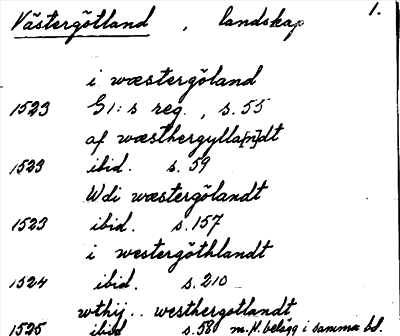 Västergötland , landskap 1.
i wæstergöland
1523 G1:s reg. , s.55
af wæsthergylla[n]dt
1523 ibid. s.59
Wdi wæstergölandt
1523 ibid. s.157
i westergöthlandt
1524 ibid. s.210
wthij.. westhergotlandt
1525 ibid s.58 m.fl. belägg i samma bd.